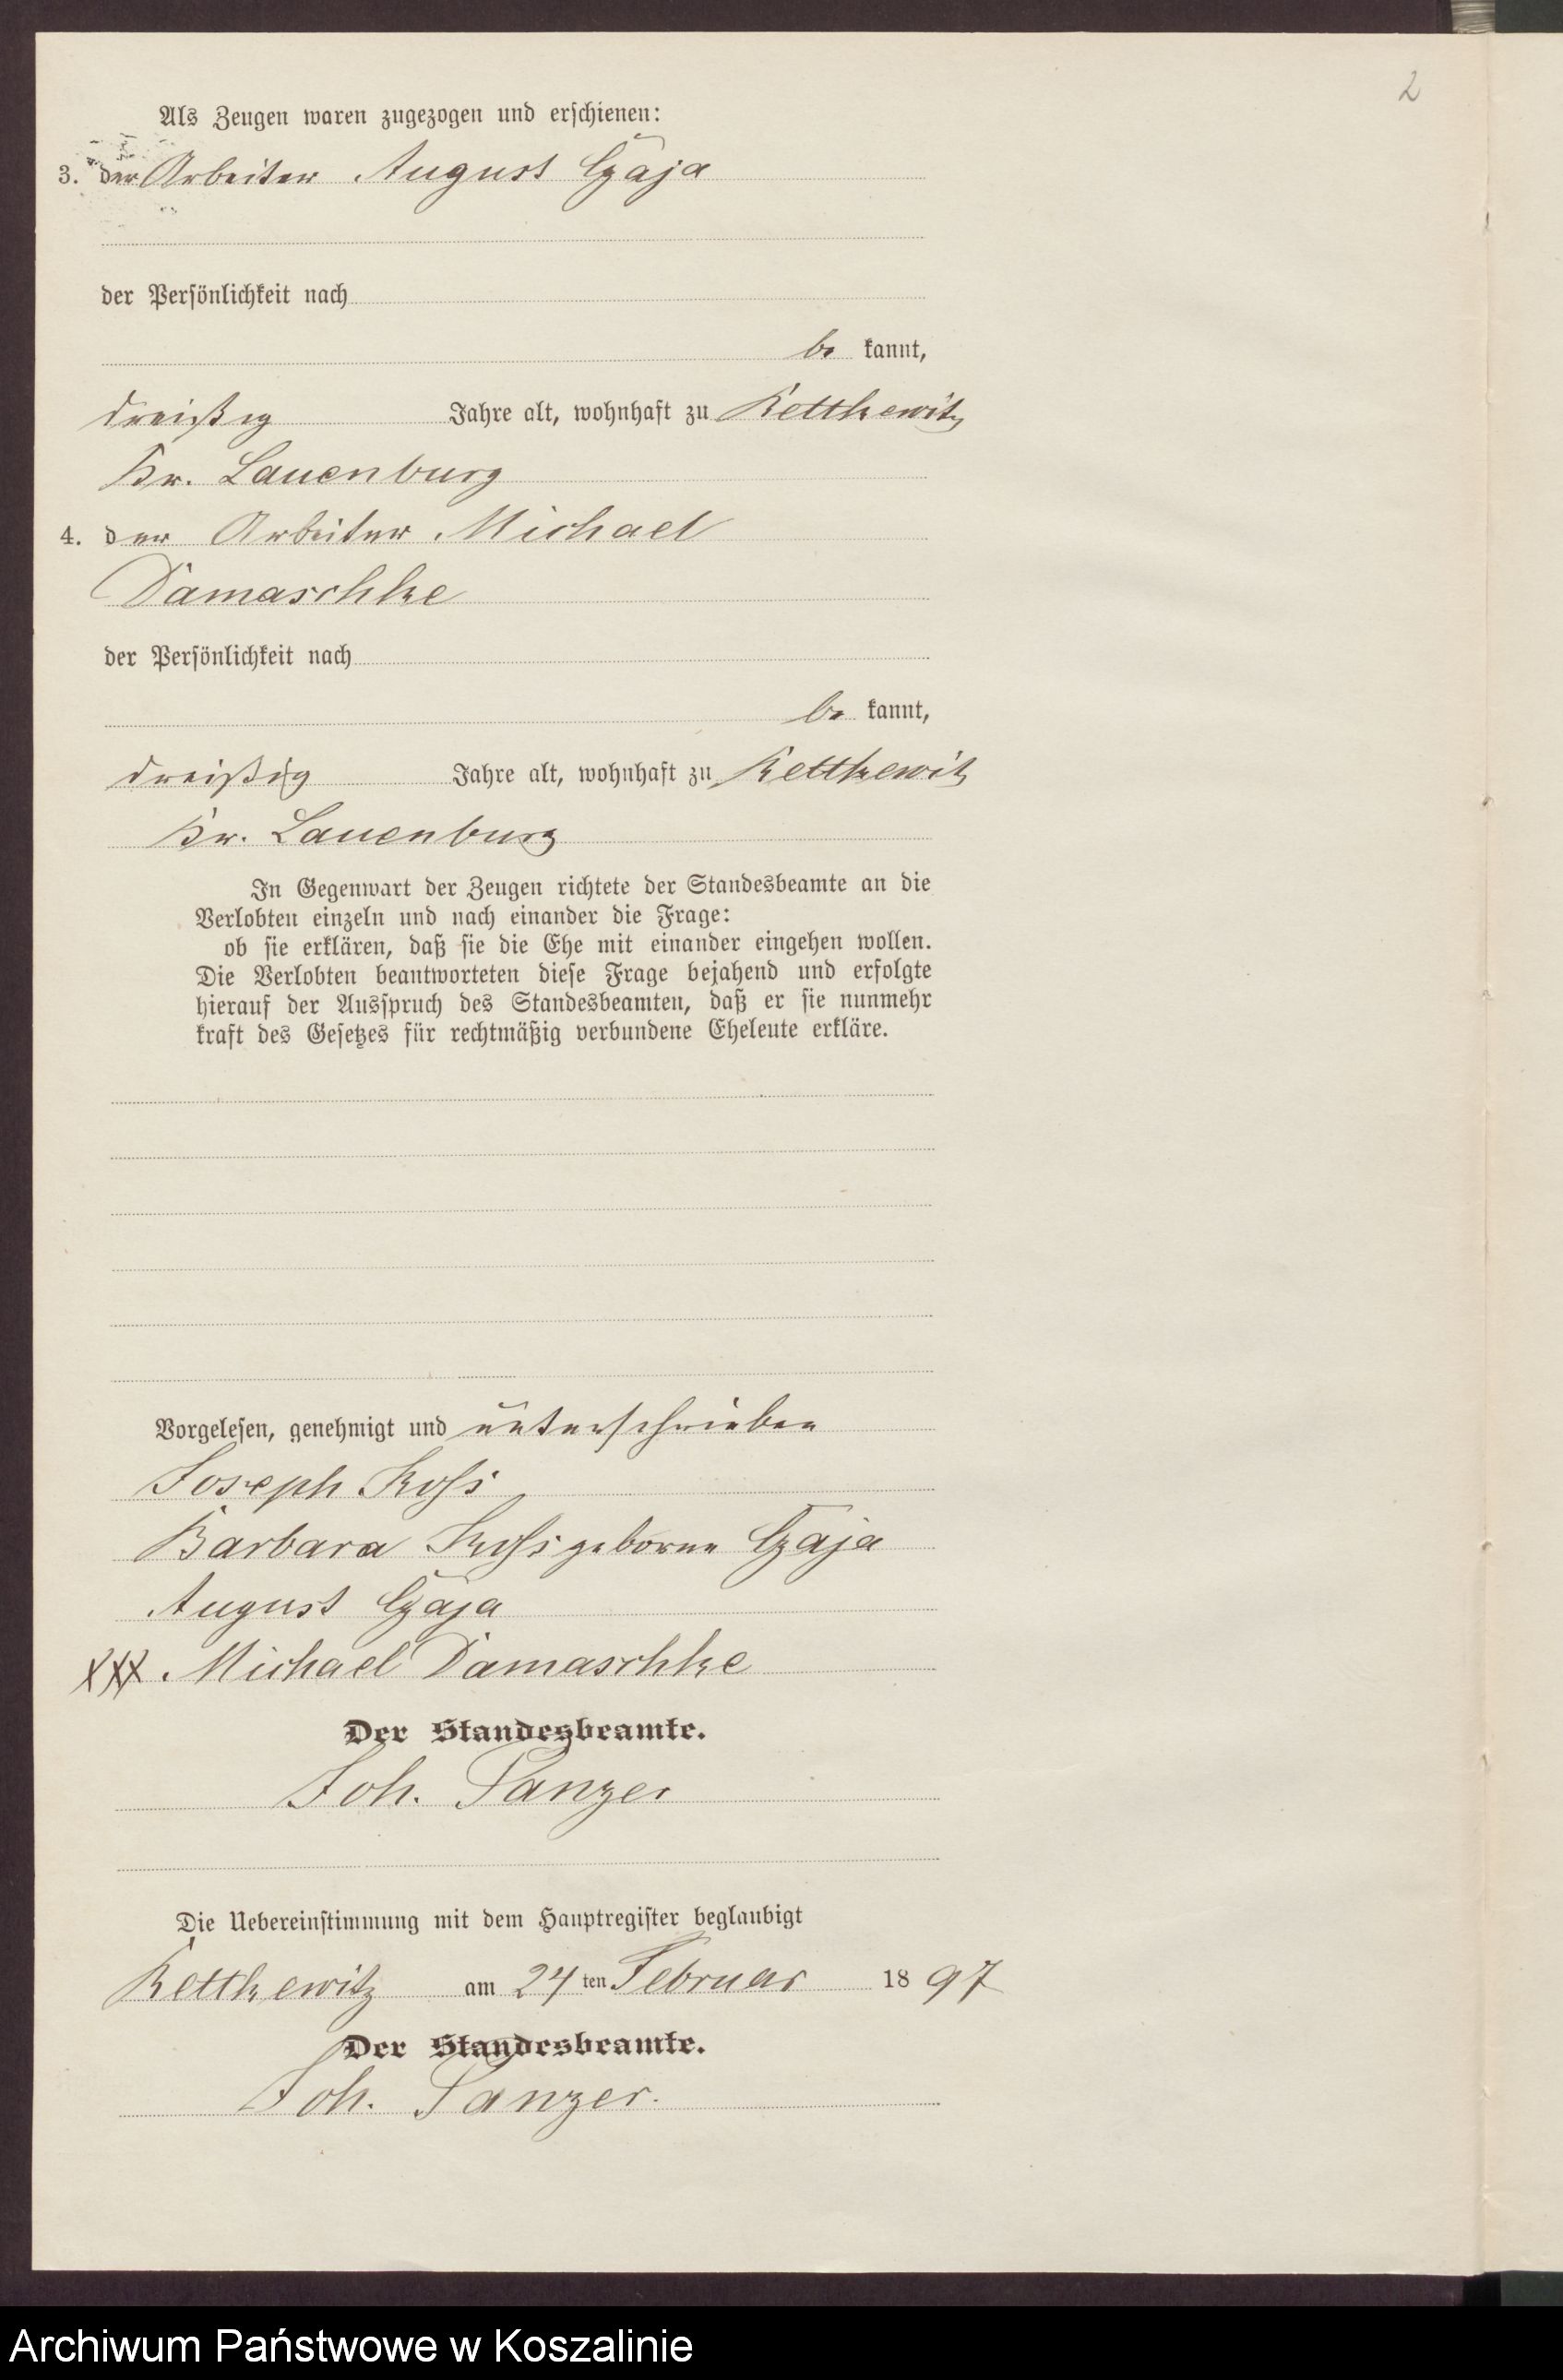 2
Als Zeugen waren zugezogen und erschienen:
3. der Arbeiter August Czaja
der Persönlichkeit nach
be kannt,
dreißig Jahre alt, wohnhaft zu Rettkewitz
Kr. Lauenburg
4. der Arbeiter Michael
Damaschke
der Persönlichkeit nach
be kannt,
dreißig Jahre alt, wohnhaft zu Rettkewitz
Kr. Lauenburg
In Gegenwart der Zeugen richtete der Standesbeamte an die
Verlobten einzeln und nach einander die Frage:
ob sie erklären, daß sie die Ehe mit einander eingehen wollen.
Die Verlobten beantworteten diese Frage bejahend und erfolgte
hierauf der Ausspruch des Standesbeamten, daß er sie nunmehr
kraft des Gesetzes für rechtmäßig verbundene Eheleute erkläre.
Vorgelesen, genehmigt und unterschrieben
Joseph Koss
Barbara Koss geborne Czaja
August Czaja
XXX Michael Damaschke
Der Standesbeamte.
Joh. Panzer
Die Uebereinstimmung mit dem Hauptregister beglaubigt
Rettkewitz am 24 ten Februar 18 97
Der Standesbeamte.
Joh. Panzer.
Archiwum Państwowe w Koszalinie